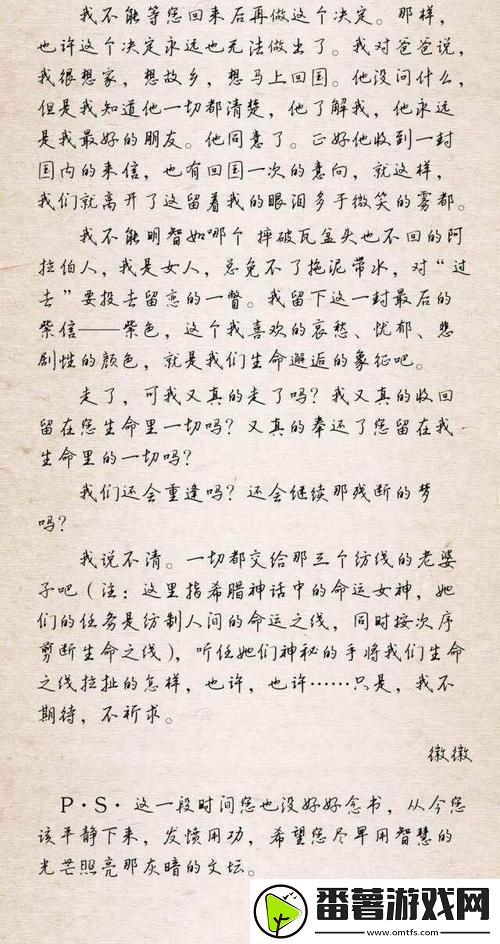 我不能等您回来后再做这个决定。那样，
也许这个决定永远也无法做出了。我对爸爸说，
我很想家，想故乡，想马上回国。他没问什么，
但是我知道他一切都清楚，他了解我，他永远
是我最好的朋友。他同意了。正好他收到一封
国内的来信，也有回国一次的意向，就这样，
我们就离开了这留着我的眼泪多于微笑的雾都。
我不能明智如哪个 摔破瓦盆头也不回的阿
拉伯人，我是女人，总免不了拖泥带水，对“过
去”要投去留恋的一瞥。我留下这一封最后的
紫信——紫色，这个我喜欢的哀愁、忧郁、悲
剧性的颜色，就是我们生命邂逅的象征吧。
走了，可我又真的走了吗？我又真的收回
留在您生命里一切吗？又真的奉还了您留在我
生命里的一切吗？
我们还会重逢吗？还会继续那残断的梦
吗？
我说不清。一切都交给那三个纺线的老婆
子吧（注：这里指希腊神话中的命运女神，她
们的任务是纺制人间的命运之线，同时按次序
剪断生命之线），听任她们神秘的手将我们生命
之线拉扯的怎样，也许，也许……只是，我不
期待，不祈求。
徽徽
P·S· 这一段时间您也没好好念书，从今您
该平静下来，发愤用功，希望您尽早用智慧的
光芒照亮那灰暗的文坛。
番薯游戏网
www.omtfs.com